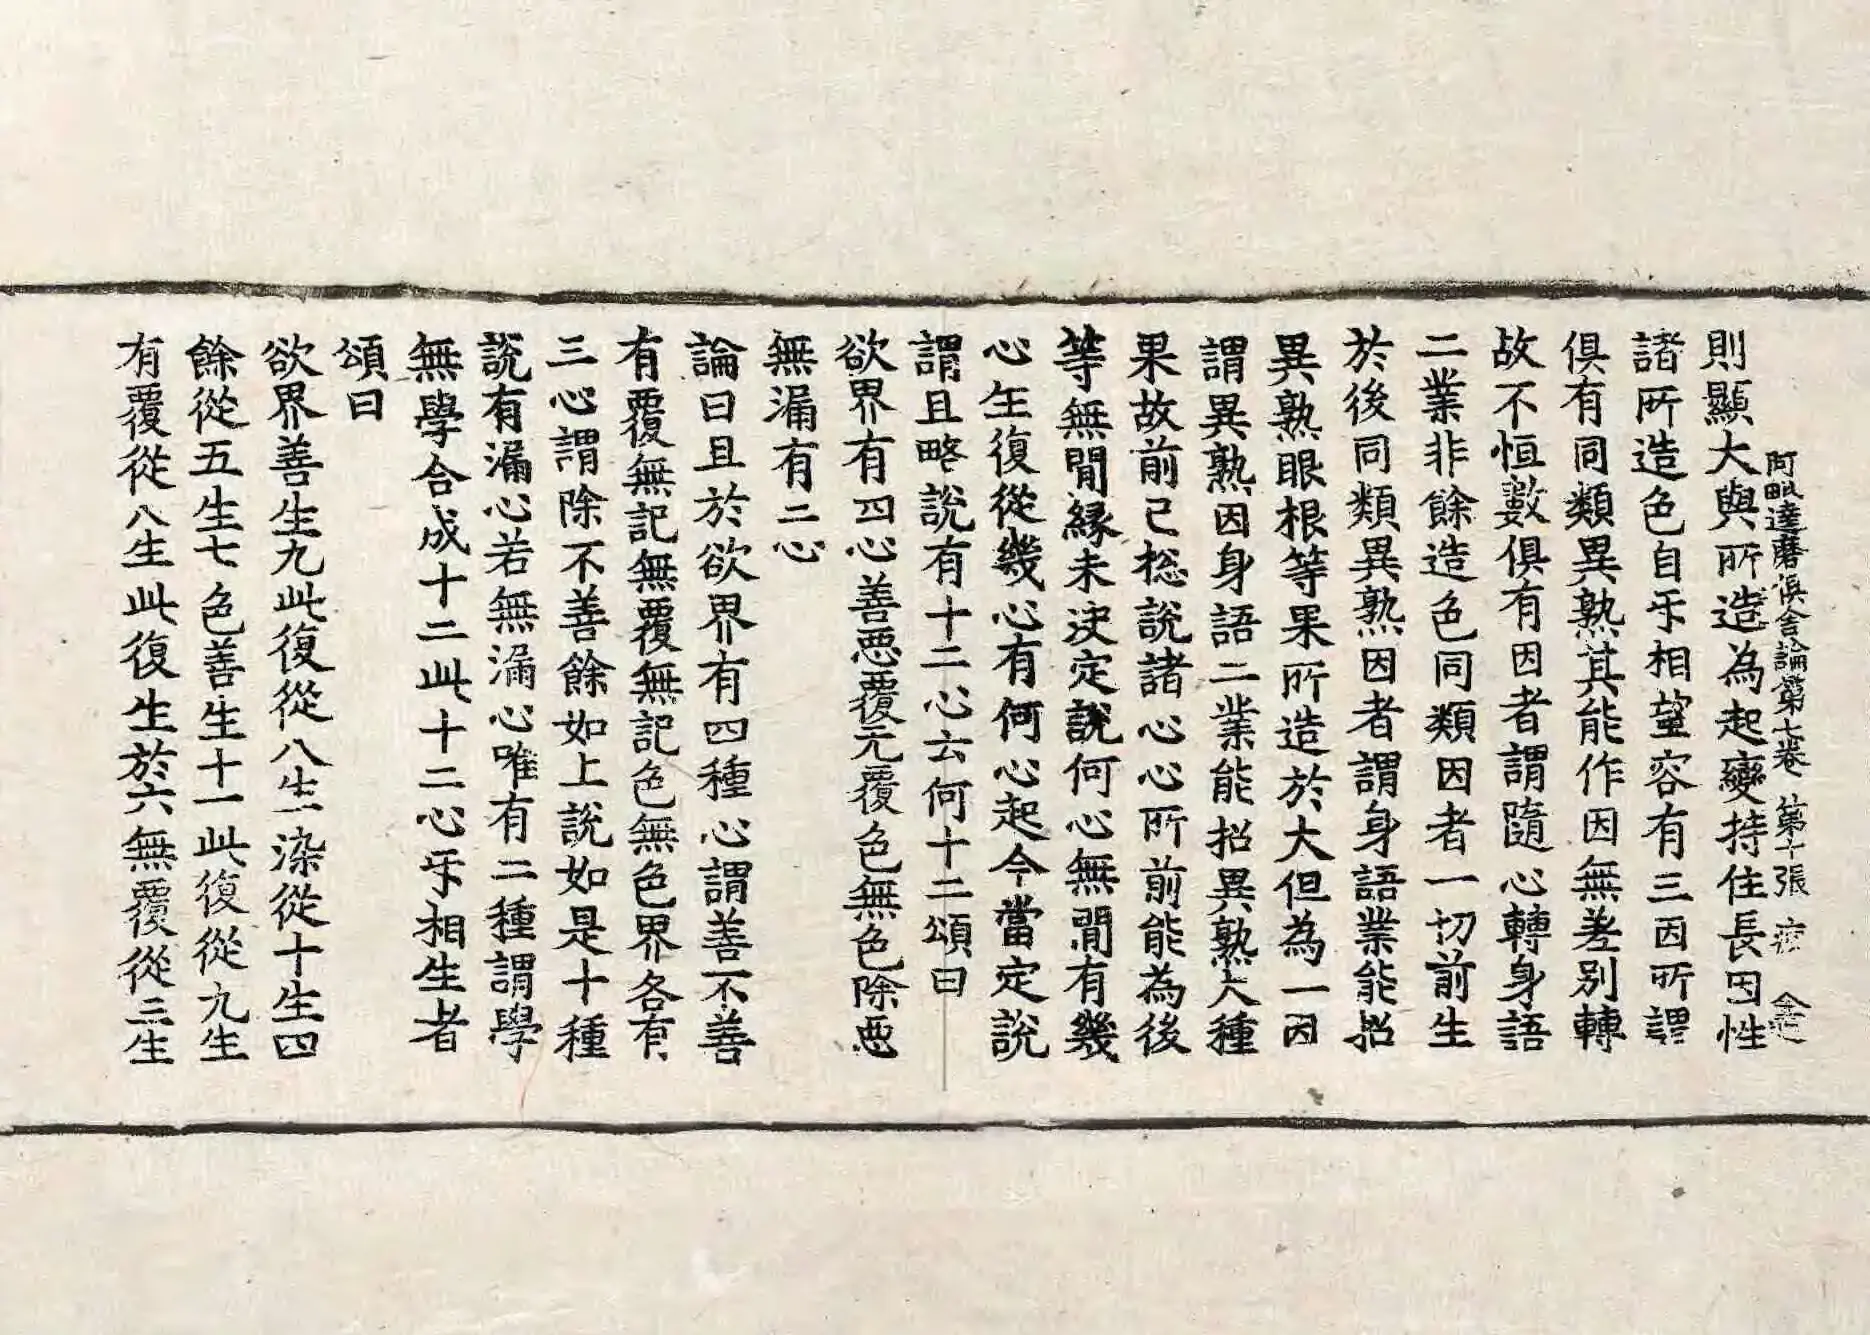 阿毗達磨俱舍論第七卷 第十張 疲
則顯大與所造為起變持住長因性
諸所造色自互相望容有三因所謂
俱有同類異熟其能作因無差別轉
故不恒數俱有因者謂隨心轉身語
二業非餘造色同類因者一切前生
於後同類異熟因者謂身語業能招
異熟眼根等果所造於大但為一因
謂異熟因身語二業能招異熟大種
果故前已捴說諸心心所前能為後
等無間緣未決定說何心無間有幾
心生復從幾心有何心起今當定說
謂且略說有十二心云何十二頌曰
欲界有四心善惡覆无覆色無色除惡
無漏有二心
論曰且於欲界有四種心謂善不善
有覆無記無覆無記色無色界各有
三心謂除不善餘如上說如是十種
說有漏心若無漏心唯有二種謂學
無學合成十二此十二心互相生者
頌曰
欲界善生九此復從八生染從十生四
餘從五生七色善生十一此復從九生
有覆從八生此復生於六無覆從三生